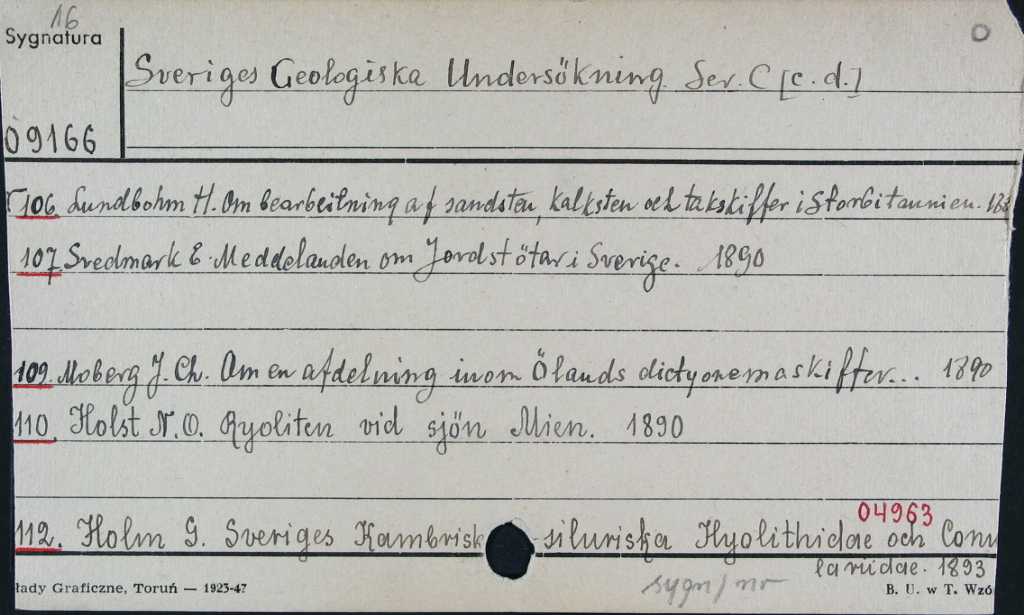 16
Sygnatura
Sveriges Geologiska Undersökning Ser. C [c. d.]
09166
106 Lundbohm H. Om bearbeitning af sandsten, kalksten och takskiffer i Storbitannien.
107. Svedmark E. Meddelanden om Jordstötar i Sverige. 1890
109 Moberg J. Ch. Om en afdelning inom Ölands dictyonemaskiffer... 1890
110. Holst N. O. Ryoliten vid sjön Mien. 1890
04963
112. Holm G. Sveriges Kambrisk-siluriska Hyolithidae och Conu
lariidae. 1893
łady Graficzne, Toruń — 1923-47
sygn/nr
B. U. w T. Wzó